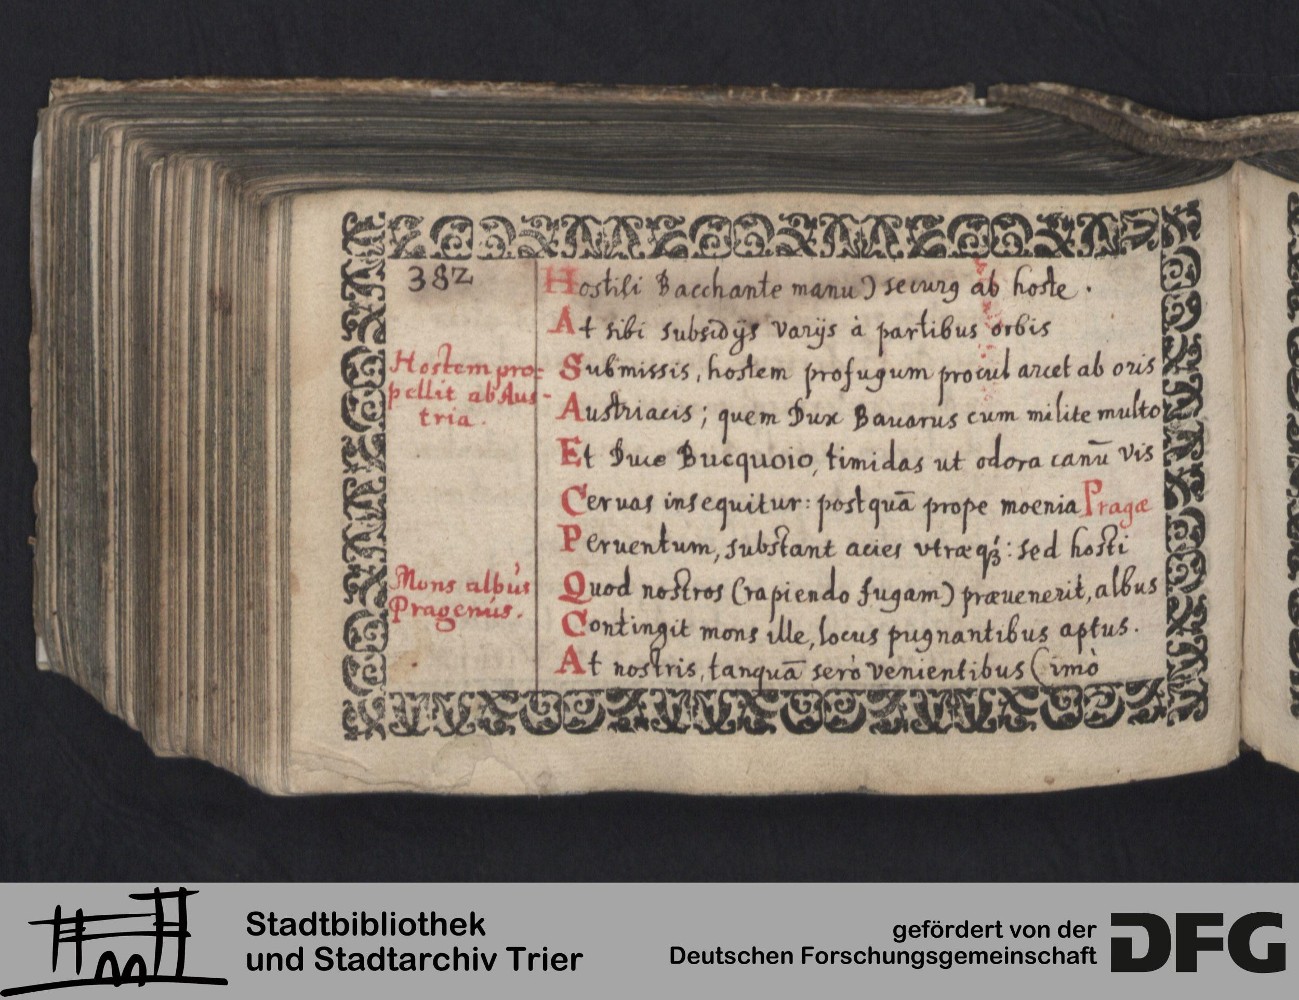 382
Hostili Bacchante manu) securꝯ ab hoste.
At sibi subsidijs varijs à partibus orbis
Hostem pro=
pellit ab Aus-
tria.
Submissis, hostem profugum procul arcet ab oris
Austriacis; quem Dux Bavarus cum milite multo
Et Duce Bucquoio, timidas ut odora canū vis
Ceruas insequitur: postquā prope moenia Pragæ
Peruentum, substant acies vtræqꝫ: sed hosti
Mons albus
Pragenus.
Quod nostros (rapiendo fugam) præuenerit, albus
Contingit mons ille, locus pugnantibus aptus.
At nostris, tanquā serò venientibus (imò
Stadtbibliothek
und Stadtarchiv Trier
gefördert von der
Deutschen Forschungsgemeinschaft
DFG